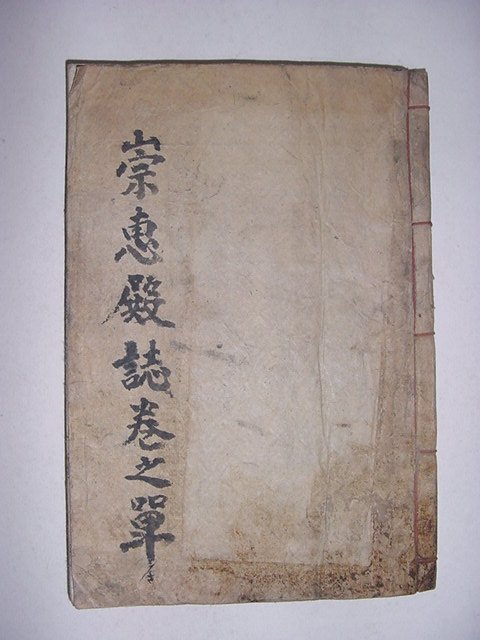 崇惠殿誌卷之單